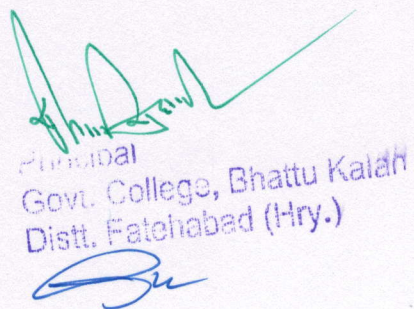 Principal
Govt. College, Bhattu Kalan
Distt. Fatehabad (Hry.)